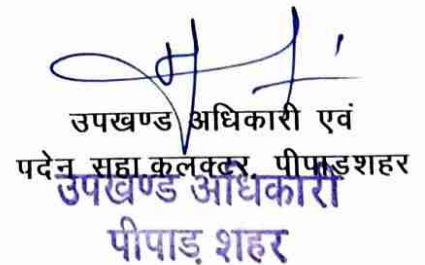 उपखण्ड अधिकारी एवं
पदेन सहा.कलक्टर, पीपाड़शहर
उपखण्ड अधिकारी
पीपाड़ शहर